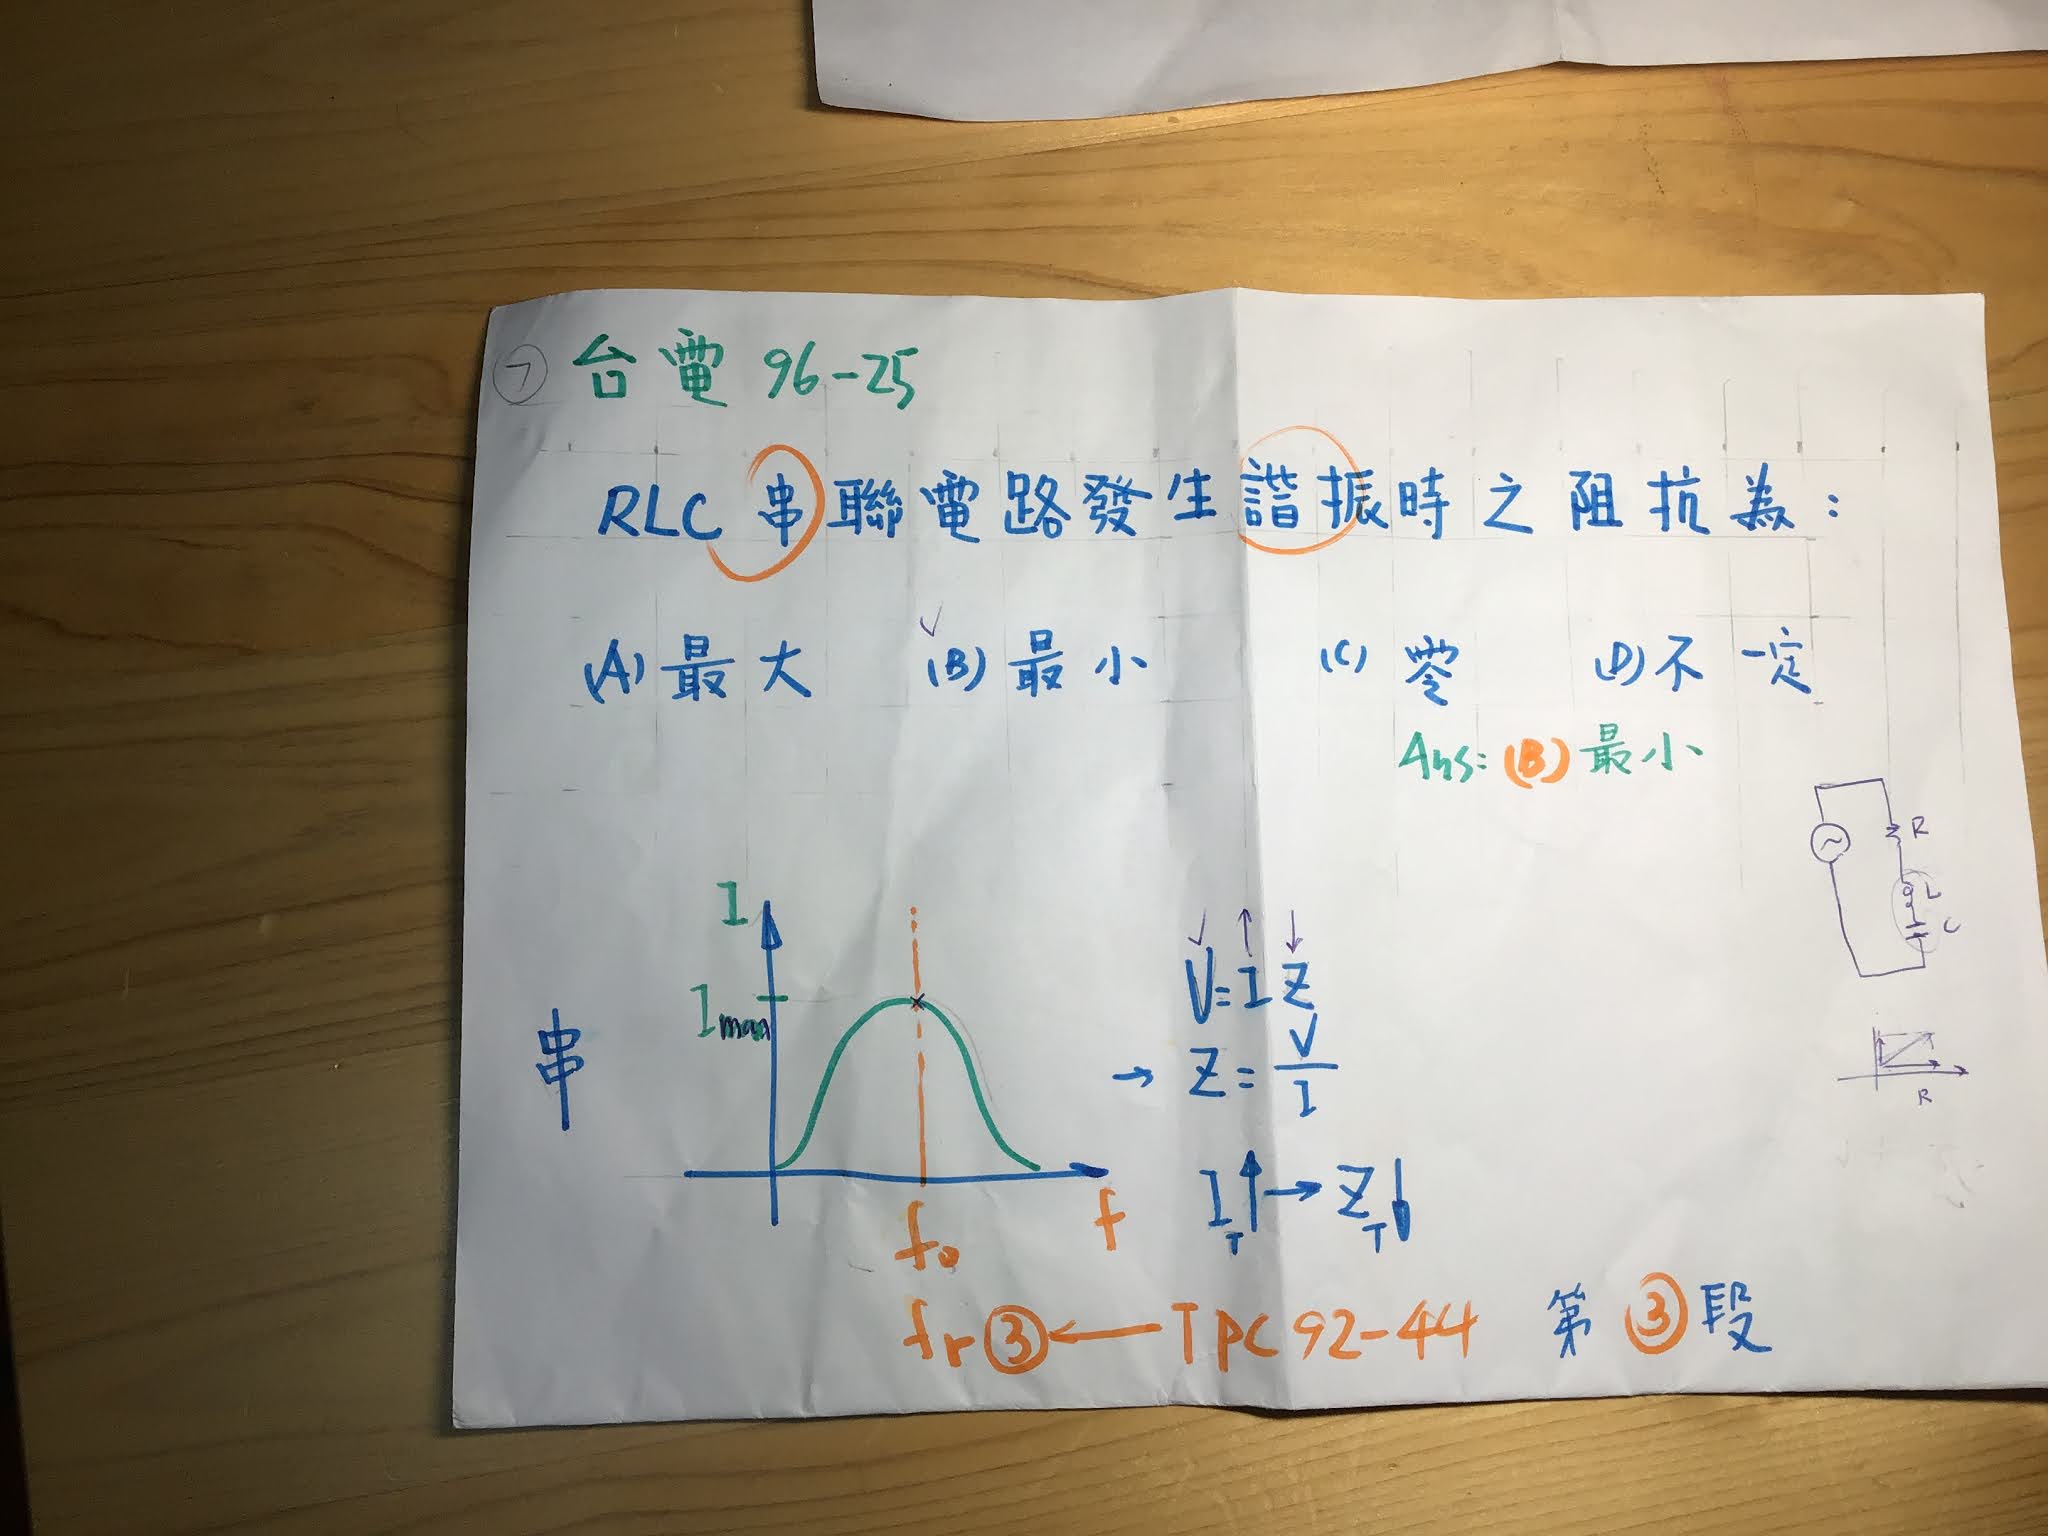 ⑦ 台電 96-25
RLC 串聯電路發生諧振時之阻抗為:
(A) 最大 (B) 最小 (C) 零 (D) 不一定
Ans: (B) 最小
R
L
C
R
串
I
Imax
f
f₀
V=IZ
→ Z = V/I
I_T↑→Z_T↓
fr③←TPC 92-44 第③段